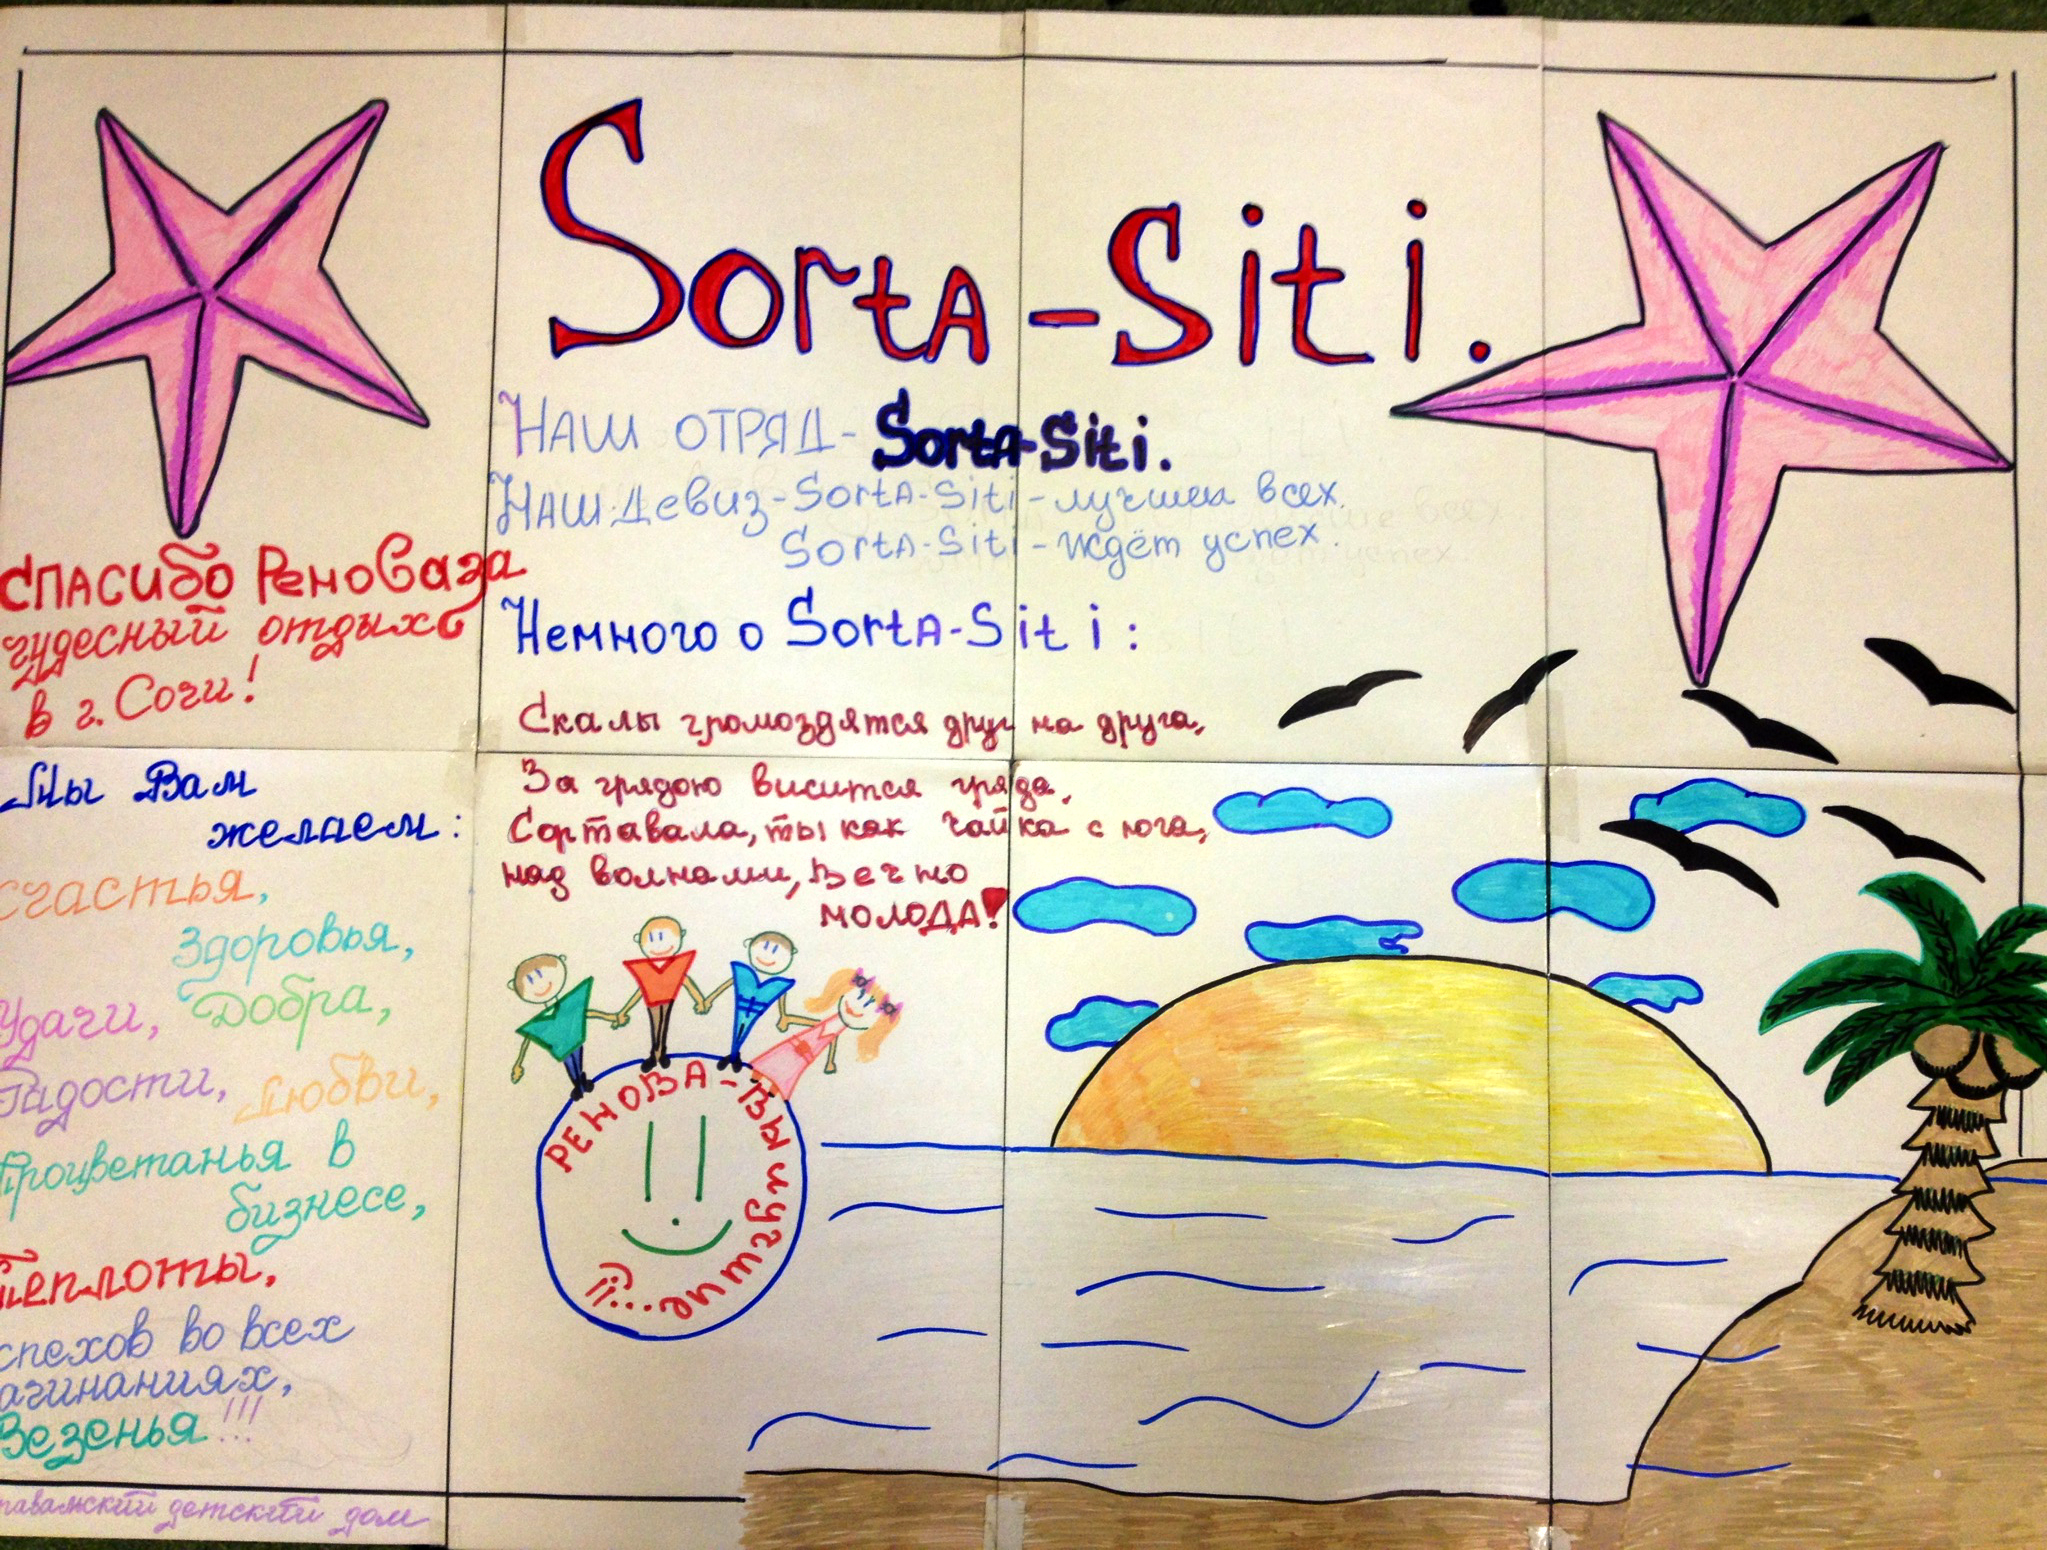 SortA-Siti.
НАШ ОТРЯД- SortA-Siti.
НАШ Девиз-SortA-Siti-лучшеи всех.
SortA-Siti-ждёт успех.
СПАСИБО Реноваза
чудесный отдых
в г. Сочи!
Немного о SortA-Siti:
Скалы громоздятся друг на друга,
За грядою висится гряда,
Сортавала, ты как чайка с юга,
над волнами, Вечно
МОЛОДА!
Мы Вам
желаем:
счастья,
Здоровья,
Удачи, Добра,
Радости, Любви,
Процветанья в
бизнесе,
Теплоты,
спехов во всех
ачинаниях,
Везенья!!!
РЕНОВА-ВЫ лучшие...!!
тавальский детский дом